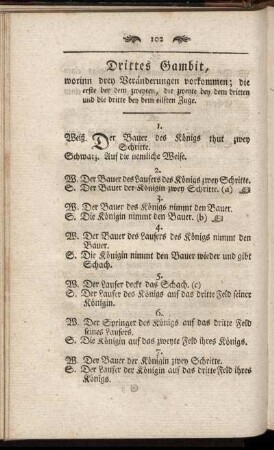 102
Drittes Gambit,
worinn drey Veränderungen vorkommen; die
erste bey dem zweyten, die zweyte bey dem dritten
und die dritte bey dem eilften Zuge.
1.
Weiß. Der Bauer des Königs thut zwey
Schritte.
Schwarz. Auf die nemliche Weise.
2.
W. Der Bauer des Laufers des Königs zwey Schritte.
S. Der Bauer der Königin zwey Schritte. (a)
3.
W. Der Bauer des Königs nimmt den Bauer.
S. Die Königin nimmt den Bauer. (b)
4.
W. Der Bauer des Laufers des Königs nimmt den
Bauer.
S. Die Königin nimmt den Bauer wieder und gibt
Schach.
5.
W. Der Laufer deckt das Schach. (c)
S. Der Laufer des Königs auf das dritte Feld seiner
Königin.
6.
W. Der Springer des Königs auf das dritte Feld
seines Laufers.
S. Die Königin auf das zweyte Feld ihres Königs.
7.
W. Der Bauer der Königin zwey Schritte.
S. Der Laufer der Königin auf das dritte Feld ihres
Königs.